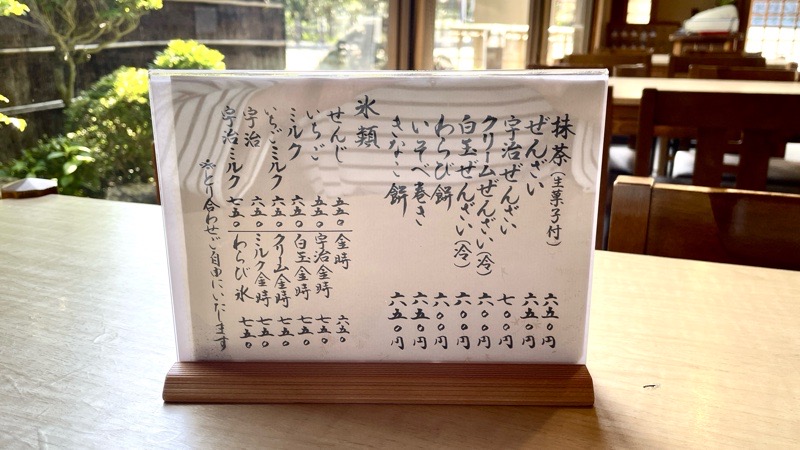 抹茶(生菓子付) 六五〇円
ぜんざい 六五〇円
宇治ぜんざい 七〇〇円
クリームぜんざい(冷) 六〇〇円
白玉ぜんざい(冷) 六〇〇円
わらび餅 六〇〇円
いそべ巻き 六五〇円
きなこ餅 六五〇円
氷類
せんじ 五五〇
いちご 五五〇
ミルク 六五〇
いちごミルク 六五〇
宇治 六五〇
宇治ミルク 七五〇
金時 六五〇
宇治金時 七五〇
白玉金時 七五〇
クリーム金時 七五〇
ミルク金時 七五〇
わらび氷 七五〇
※とり合わせご自由にいたします